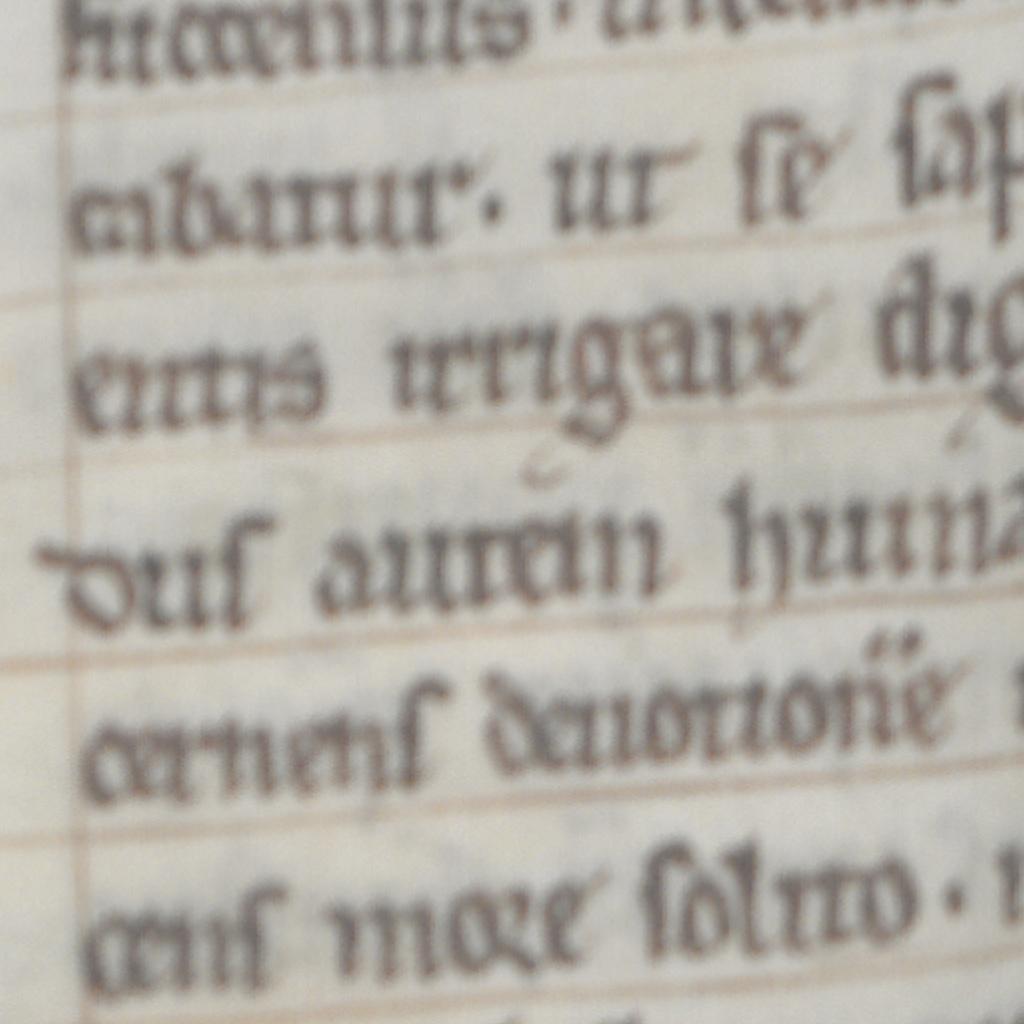 cabatur. ut se sap
entis irrigare dig
dus autem huma
cernens deuotione
cens more solito.